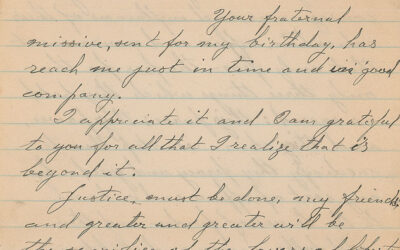 Your fraternal
missive, sent for my birthday, has
reach me just in time and in good
company.
I appreciate it and I am grateful
to you for all that I realize that is
beyond it.
Justice, must be done, my friends,
and greater and greater will be
the